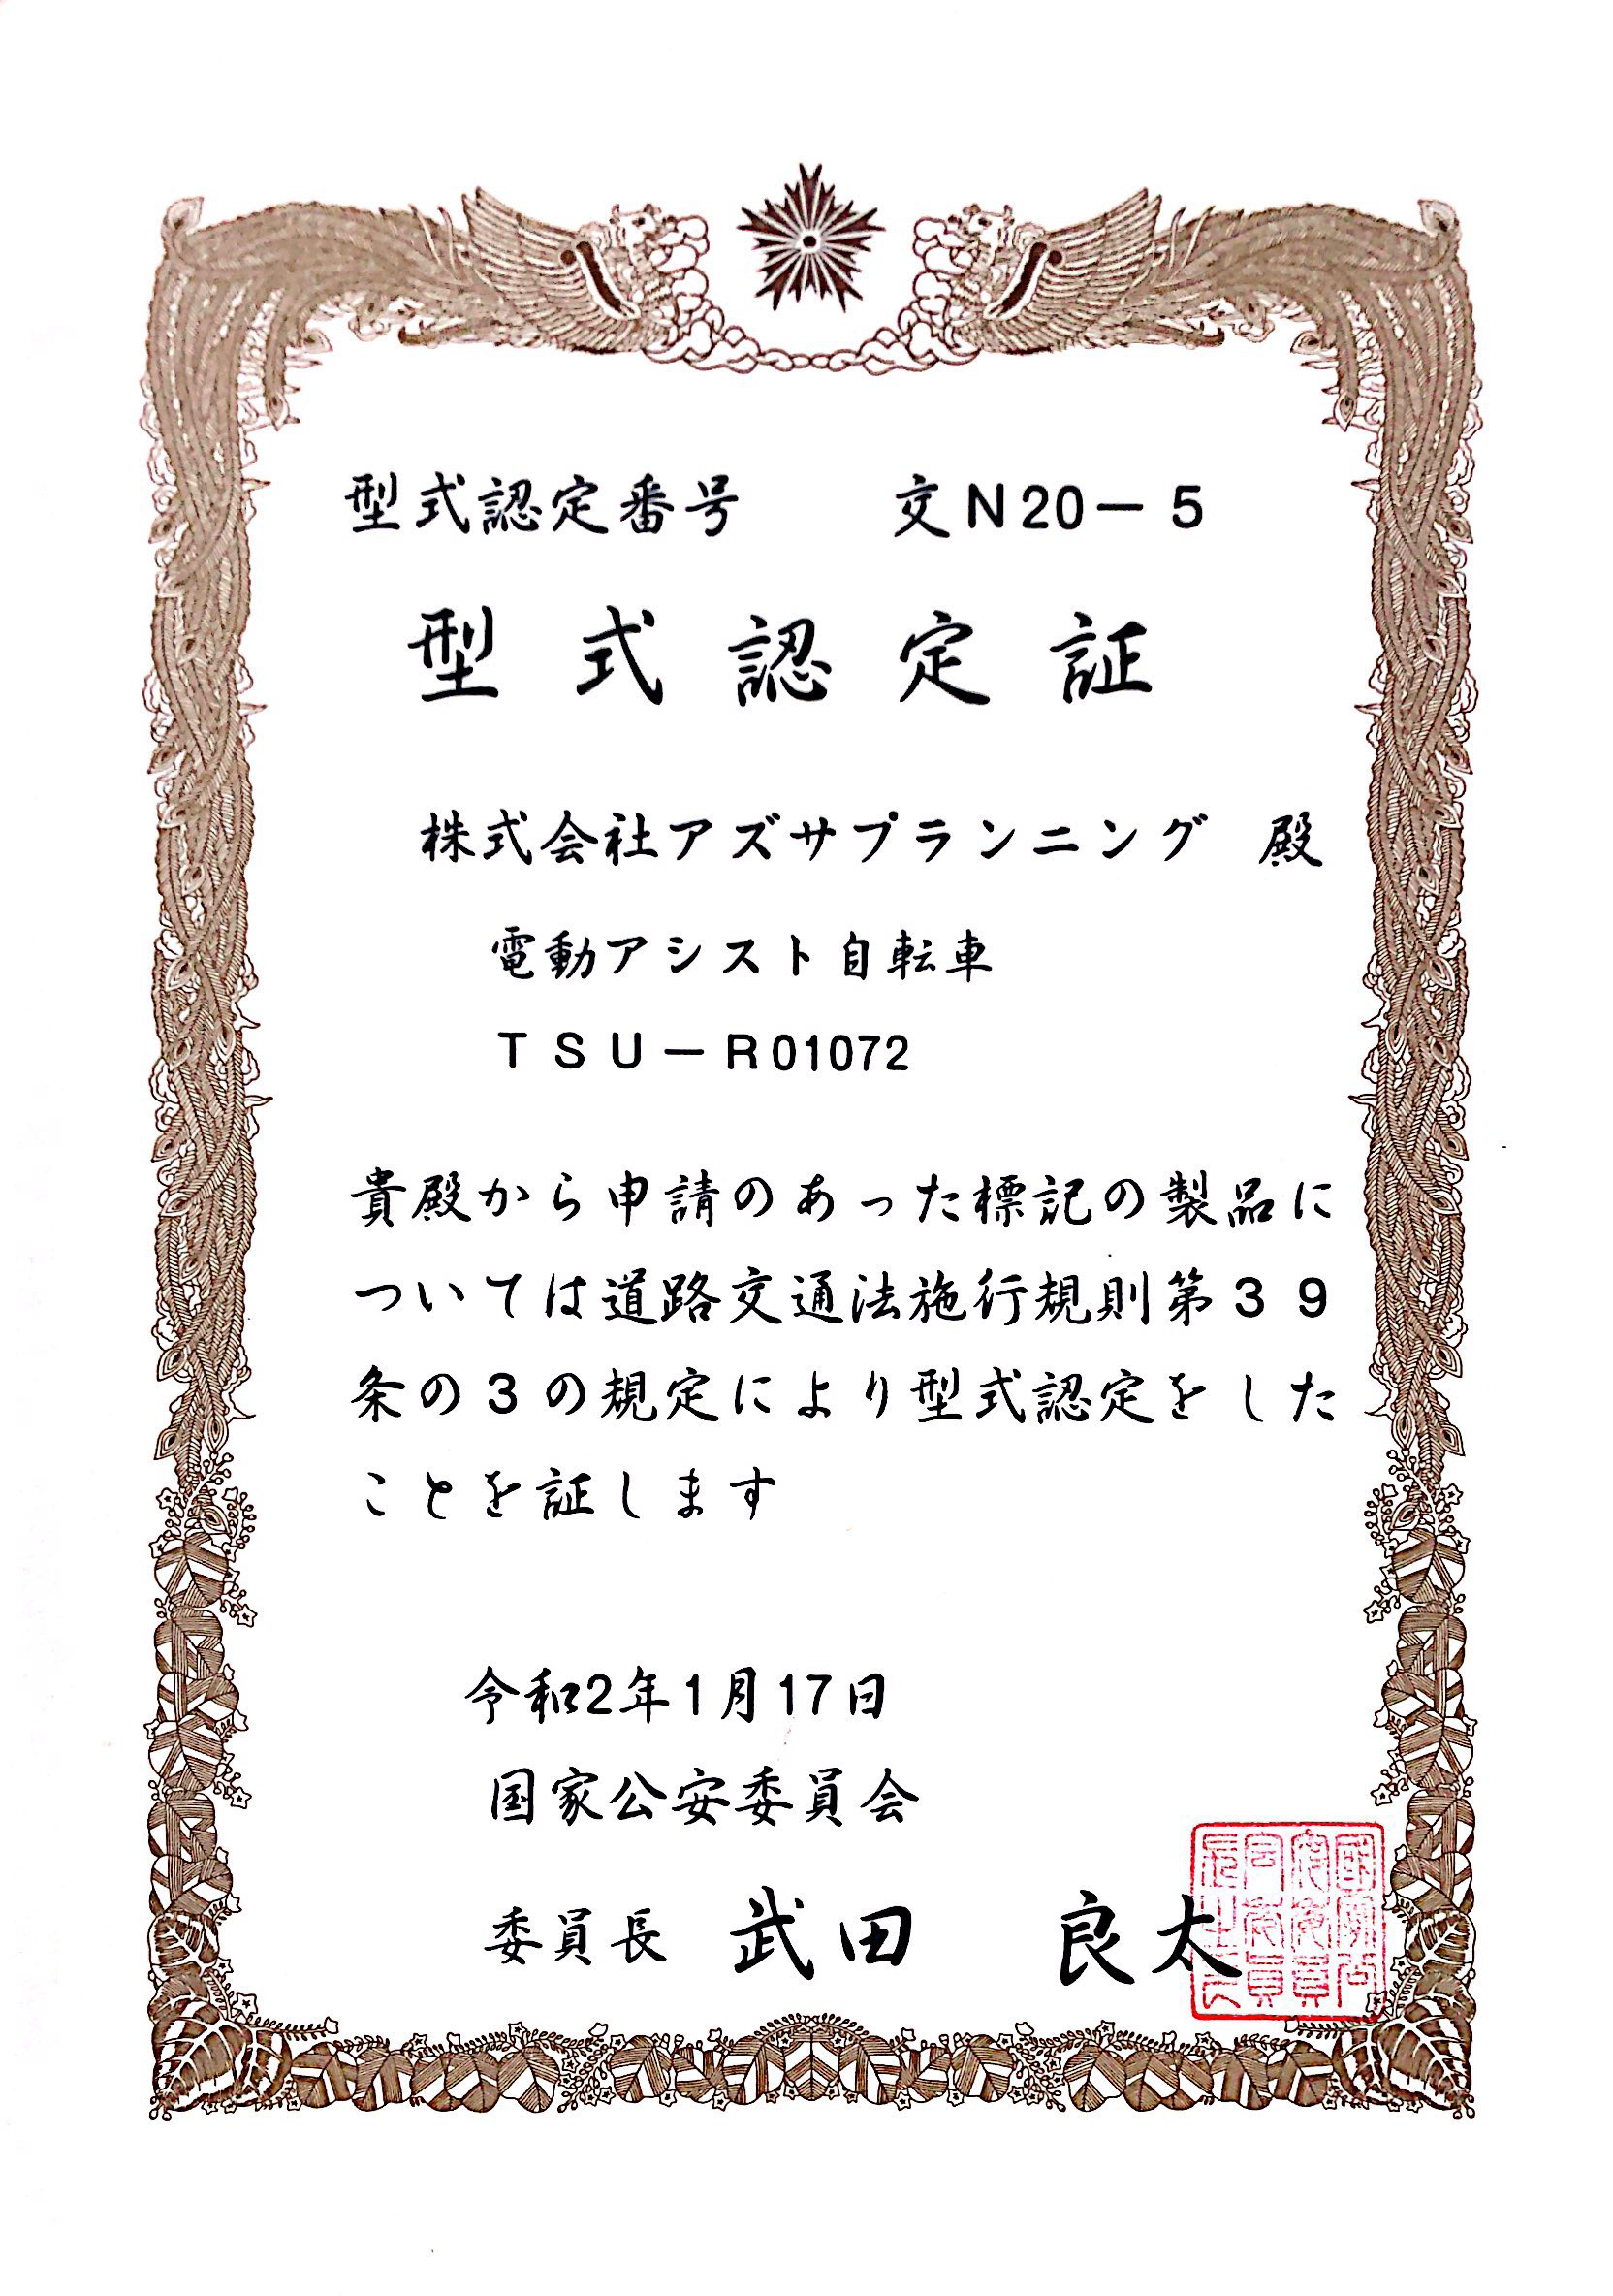 型式認定番号　　交N20－5
型式認定証
株式会社アズサプランニング　殿
電動アシスト自転車
ＴＳＵ－R01072
貴殿から申請のあった標記の製品に
ついては道路交通法施行規則第３９
条の３の規定により型式認定をした
ことを証します
令和2年1月17日
国家公安委員会
委員長　武田　良太